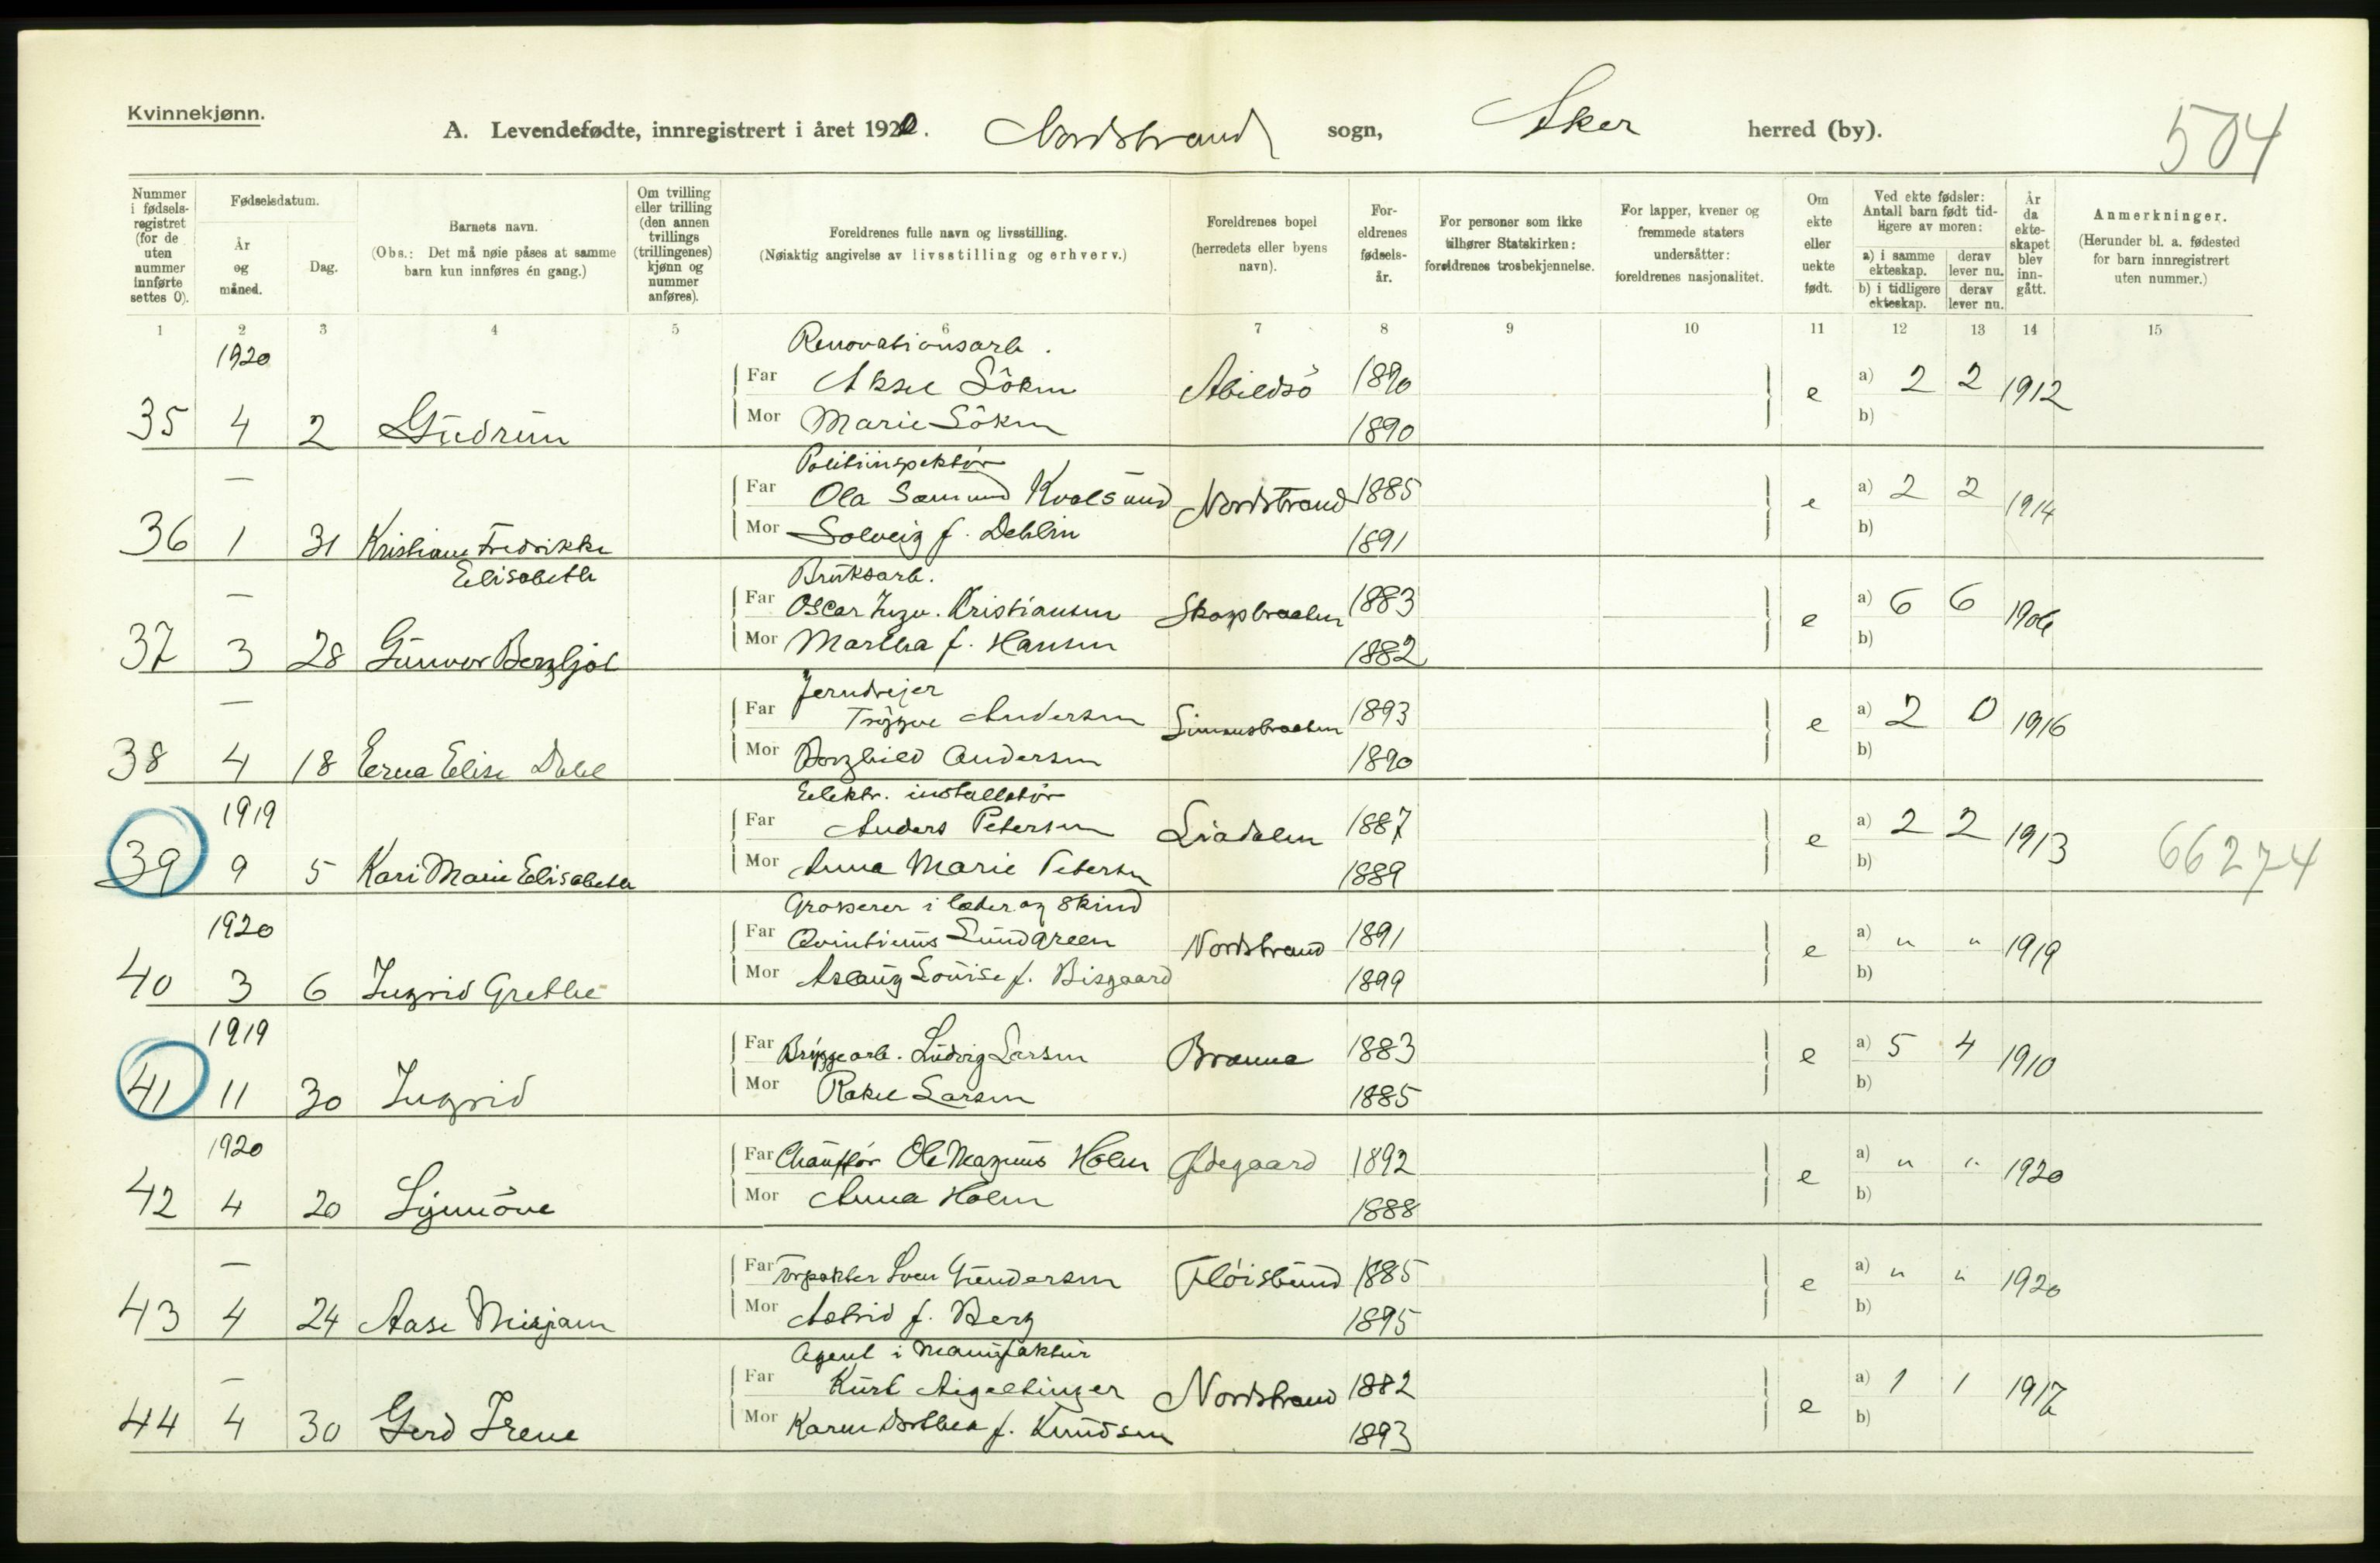 Kvinnekjønn.
A. Levendefødte, innregistrert i året 1920. Nordstrand sogn, Aker herred (by).
504
Nummer i fødselsregistret (for de uten nummer innførte settes 0).
Fødselsdatum.
År og måned.
Dag.
Barnets navn.
(Obs.: Det må nøie påses at samme barn kun innføres én gang.)
Om tvilling eller trilling (den annen tvillings (trillingenes) kjønn og nummer anføres).
Foreldrenes fulle navn og livsstilling.
(Nøiaktig angivelse av livsstilling og erhverv.)
Foreldrenes bopel (herredets eller byens navn).
Foreldrenes fødselsår.
For personer som ikke tilhører Statskirken: foreldrenes trosbekjennelse.
For lapper, kvener og fremmede staters undersåtter: foreldrenes nasjonalitet.
Om ekte eller uekte født.
Ved ekte fødsler: Antall barn født tidligere av moren:
a) i samme ekteskap. derav lever nu.
b) i tidligere ekteskap. derav lever nu.
År da ekteskapet blev inngått.
Anmerkninger.
(Herunder bl. a. fødested for barn innregistrert uten nummer.)
1 2 3 4 5 6 7 8 9 10 11 12 13 14 15
1920 Renovationsarb.
Far Aksel Søkm Abildsø 1890 e a) 2 2 1912
35 4 2 Gudrun Mor Marie Søkm 1890 b)
— Politiinspektør
Far Ola Sæmund Kvalsund Nordstrand 1885 e a) 2 2 1914
36 1 31 Kristiane Fredrikke Mor Solveig f. Dehlin 1891 b)
Elisabeth Bruksarb.
— Far Oscar Ingv. Kristiansen Skapbraaten 1883 e a) 6 6 1906
37 3 28 Gunvor Bergljot Mor Martha f. Hansen 1882 b)
— Jerndrejer
Far Trygve Andersen Simensbraaten 1893 e a) 2 0 1916
38 4 18 Erna Elise Dahl Mor Borghild Andersen 1890 b)
1919 Elektr. installatør
Far Anders Petersen Liadalen 1887 e a) 2 2 1913 66274
39 9 5 Kari Marie Elisabeth Mor Anna Marie Petersen 1889 b)
1920 Grosserer i læder og skind
Far Qvintinus Lundgreen Nordstrand 1891 e a) " " 1919
40 3 6 Ingrid Grethe Mor Aslaug Louise f. Bisgaard 1899 b)
1919
Far Bryggearb. Ludvig Larsen Brenna 1883 e a) 5 4 1910
41 11 30 Ingrid Mor Rakel Larsen 1885 b)
1920
Far Chauffør Ole Magnus Holm Ødegaard 1892 e a) " " 1920
42 4 20 Synnøve Mor Anna Holm 1888 b)
—
Far Forpakter Sven Gundersen Fløisbund 1885 e a) " " 1920
43 4 24 Aase Mirjam Mor Astrid f. Berg 1895 b)
Agent i Manufaktur
— Far Kurt Aigeltinger Nordstrand 1882 e a) 1 1 1917
44 4 30 Gerd Irene Mor Karen Dorthea f. Knudsen 1893 b)